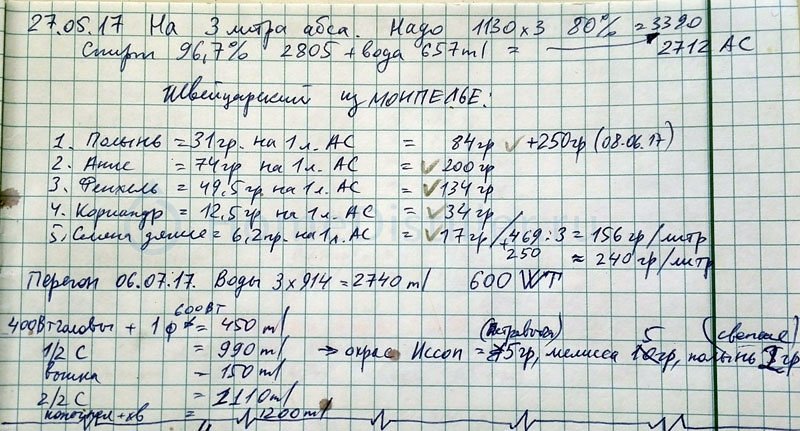 27.05.17 На 3 литра абса. Надо 1130 x 3 80% = 3390
Спирт 96,7% 2805 + вода 657 ml = 2712 АС
Швейцарский из МОНПЕЛЬЕ:
1. Полынь = 31гр. на 1 л. АС = 84гр ✓ +250гр (08.06.17)
2. Анис = 74гр на 1 л. АС = ✓200гр
3. Фенхель = 49,5гр. на 1 л. АС = ✓134гр
4. Кориандр = 12,5гр на 1 л. АС = ✓34гр
5. Семена дягиля = 6,2гр. на 1 л. АС = ✓17гр / 469 : 3 = 156 гр/литр
+250 ≈ 240 гр/литр
Перегон 06.07.17. Воды 3 x 914 = 2740 ml 600 WТ
600ВТ
400Вт головы + 1 ф = 450 ml
1/2 С = 990 ml → окрас Иссоп = 5гр, мелисса 5 гр, полынь 1 гр
(петровский) (свежие)
вышка - 150 ml
2/2 С = 1110 ml
+ хв = 1200 ml